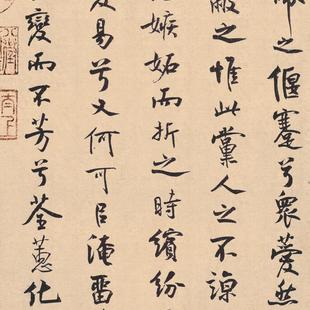 之偃蹇兮眾薆然
蔽之惟此黨人之不諒
嫉妬而折之時繽紛
易兮又何可㠯淹畱
變而不芳兮荃蕙化